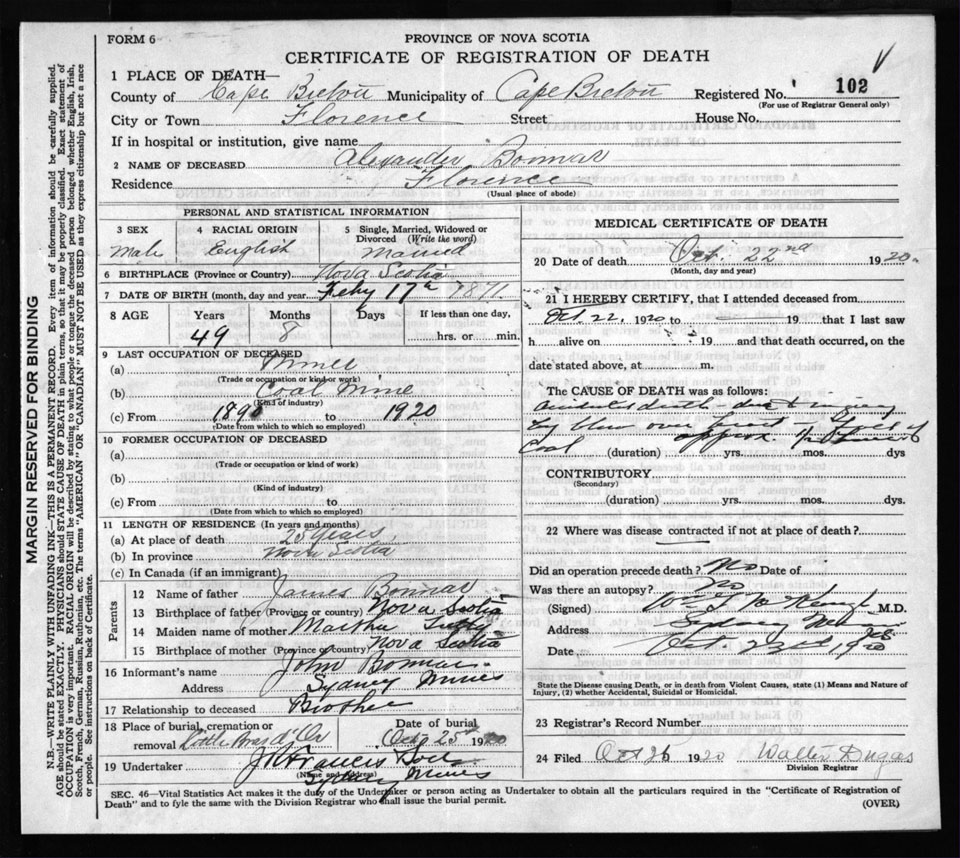 FORM 6
PROVINCE OF NOVA SCOTIA
CERTIFICATE OF REGISTRATION OF DEATH
1 PLACE OF DEATH—
County of Cape Breton Municipality of Cape Breton Registered No. 102
(For use of Registrar General only)
City or Town Florence Street House No.
If in hospital or institution, give name
2 NAME OF DECEASED Alexander Bonnar
Residence Florence
(Usual place of abode)
PERSONAL AND STATISTICAL INFORMATION
3 SEX 4 RACIAL ORIGIN 5 Single, Married, Widowed or Divorced (Write the word)
Male English Married
6 BIRTHPLACE (Province or Country) Nova Scotia
7 DATE OF BIRTH (month, day and year) Feby 17th 1871.
8 AGE Years Months Days If less than one day,
49 8 hrs. or min.
9 LAST OCCUPATION OF DECEASED
(a) Miner
(Trade or occupation or kind or work)
(b) Coal Mine
(Kind of industry)
(c) From 1890 to 1920
(Date from which to which so employed)
10 FORMER OCCUPATION OF DECEASED
(a)
(Trade or occupation or kind of work)
(b)
(Kind of industry)
(c) From to
(Date from which to which so employed)
11 LENGTH OF RESIDENCE (In years and months)
(a) At place of death 25 years,
(b) In province Nova Scotia
(c) In Canada (if an immigrant)
Parents
12 Name of father James Bonnar
13 Birthplace of father (Province or country) Nova Scotia
14 Maiden name of mother Martha
15 Birthplace of mother (Province or country) Nova Scotia
16 Informant's name John Bonnar
Address Sydney Mines
17 Relationship to deceased Brother
18 Place of burial, cremation or removal Little Bras d'Or
Date of burial Oct 25th 1920
19 Undertaker J R Francis
(Name and Address)
Sydney Mines
MEDICAL CERTIFICATE OF DEATH
20 Date of death Oct. 22nd 1920.
(Month, day and year)
21 I HEREBY CERTIFY, that I attended deceased from
Oct 22, 1920 to 19 that I last saw
h alive on 19 and that death occurred, on the
date stated above, at m.
The CAUSE OF DEATH was as follows:
Accidental death due to injury
by blow over heart
Coal (duration) approx. yrs. mos. dys
CONTRIBUTORY
(Secondary)
(duration) yrs. mos. dys.
22 Where was disease contracted if not at place of death?
Did an operation precede death? No Date of
Was there an autopsy? No
(Signed) M.D.
Address Sydney Mines
Date Oct. 23rd, 1920
State the Disease causing Death, or in death from Violent Causes, state (1) Means and Nature of Injury, (2) whether Accidental, Suicidal or Homicidal.
23 Registrar's Record Number
24 Filed Oct 26 1920 Walter Dugas
Division Registrar
SEC. 46—Vital Statistics Act makes it the duty of the Undertaker or person acting as Undertaker to obtain all the particulars required in the "Certificate of Registration of
Death" and to fyle the same with the Division Registrar who shall issue the burial permit.
(OVER)
MARGIN RESERVED FOR BINDING
N.B.—WRITE PLAINLY WITH UNFADING INK—THIS IS A PERMANENT RECORD. Every item of information should be carefully supplied.
AGE should be stated EXACTLY. PHYSICIANS should STATE CAUSE OF DEATH in plain terms, so that it may be properly classified. Exact statement of
OCCUPATION is very important. RACIAL ORIGIN will be described by stating to what people or tongue the deceased person belonged whether English, Irish,
Scotch, French, German, Russian, Ruthenian, etc. The terms "AMERICAN" OR "CANADIAN" MUST NOT BE USED as they express citizenship but not a race
or people. See instructions on back of Certificate.